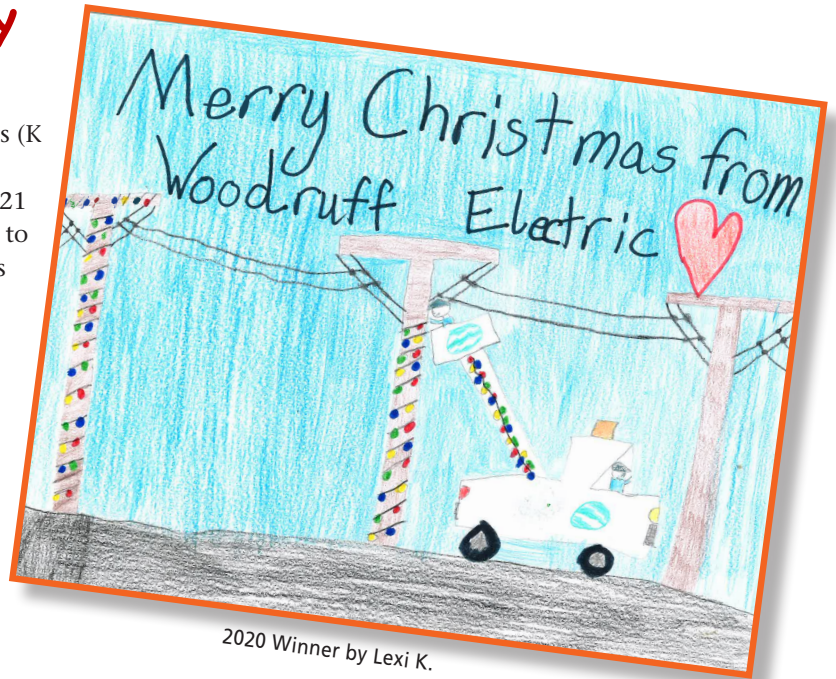 y
s (K
21
to
s
Merry Christmas from
Woodruff Electric
2020 Winner by Lexi K.